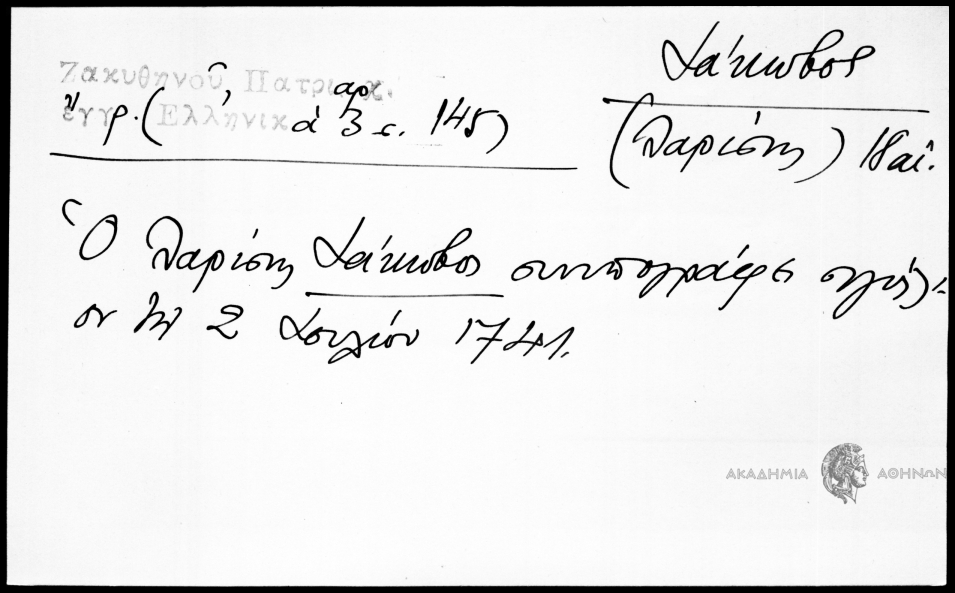 Ζακυθηνοῦ, Πατριαρχ.
ἔγγρ. (Ἑλληνικά ἀρ 3 σ. 145)
Ἰάκωβος
(Λαρίσης) 18 αἰ.
Ὁ Λαρίσης Ἰάκωβος συνυπογράφει σιγίλλι-
ον τῇ 2 Ἰουλίου 1741.
ΑΚΑΔΗΜΙΑ ΑΘΗΝΩΝ